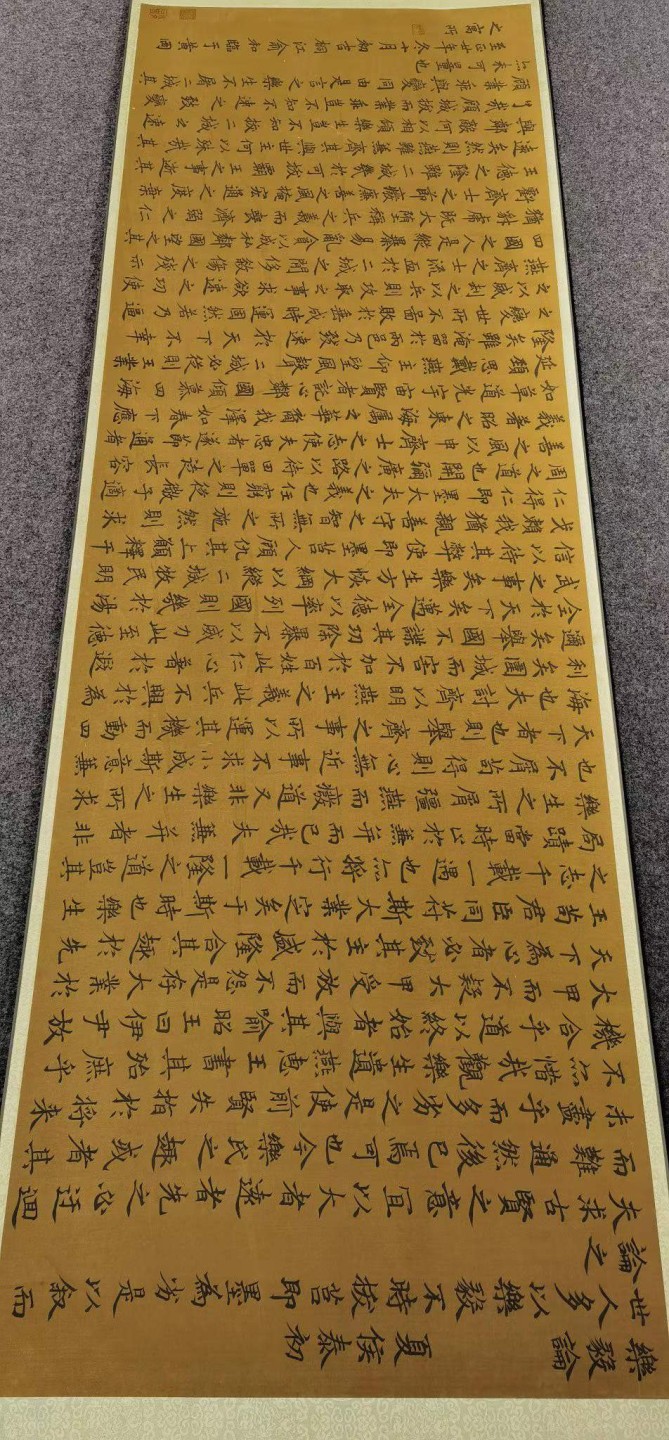 樂毅論 夏侯泰初
世人多以樂毅不時拔莒即墨為劣是以叙而
論之
夫求古賢之意宜以大者遠者先之必迂迴
而難通然後已焉可也今樂氏之趣或者其
未盡乎而多劣之是使前賢失指於將來
不亦惜哉觀樂生遺燕惠王書其殆庶乎
機合乎道以終始者與其喻昭王曰伊尹放
大甲而不疑大甲受放而不怨是存大業於
天下為心者必致其主於盛隆合其趣於先
王苟君臣同符斯大業定矣于斯時也樂生
之志千載一遇也亦將行千載一隆之道豈其
局蹟當時止於兼并而已哉夫兼并者非
樂生之所屑彊燕而廢道又非樂生之所求
也不屑苟得則心無近事不求小成斯意兼
天下者也則舉齊之事所以運其機而動四
海也夫討齊以明燕主之義此兵不興於為
利矣圍城而害不加於百姓此仁心著於遐
邇矣舉國不謀其功除暴不以威力此至德
全於天下矣邁全德以率列國則幾於湯
武之事矣樂生方恢大綱以縱二城牧民明
信以待其弊使即墨莒人顧仇其上願釋干
戈賴我猶親善守之智無所之施然則求
仁得仁即墨大夫之義也任窮則從微子適
周之道也開彌廣之路以待田單之徒長容
善之風以申齊士之志使夫忠者遂節通者
義著昭之東海屬之華裔我澤如春下應
如草道光宇宙賢者託心鄰國傾慕四海
延頸思戴燕主仰望風聲二城必從則王業
隆矣雖淹留於兩邑乃致速於天下不幸
之變世所不圖敗於垂成時運固然若乃逼
之以威劫之以兵則攻取之事求欲速之功使
燕齊之士流血於二城之間侈殺傷之殘示
四國之人是縱暴易亂貪以成私鄰國望之其
猶豺虎既大墮稱兵之義而喪濟弱之仁
虧齊士之節廢廉善之風掩宏通之度棄
王德之隆雖二城幾於可拔霸王之事逝其
遠矣然則燕雖兼齊其與世主何以殊哉其
與鄰敵何以相傾樂生豈不知拔二城之速
了哉顧城拔而業乖豈不知不速之致變
顧業乖與變同由是言之樂生不屠二城其
亦未可量也
至正廿年冬十月 桐江俞和臨于黃岡
之寓所